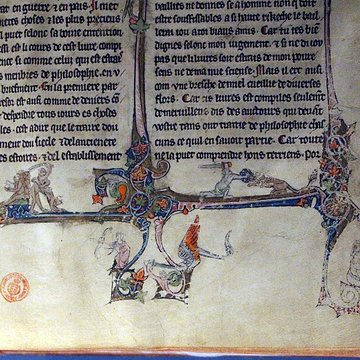 en guerre & en pais Il met
choses & les plus precieus
puet selonc sa bone entencion
est li cours de cest livre compi
ience si comme celui qui est estrais
membres de philosophie en v
briefment En la premiere par
est aussi comme deniers con
despendre tous jours es choses
es est adir que le traite dou
ment dou siecle & delancienete
estoires & del establissement
vaillites ne donnee se a homme non ki
este souffissables a si haut rikeche le baill
iert iou a toi biaus amis Car tu ies bien
dignes selonc mon jugement & si ne di iou
pas que li livres soit estrais de mon pour
sens ne de ma nue science Mais il ert aussi
com une bresche de miel cueillie de diverses
flors Car cis livres est compiles seulement
de merveilleus dis des auctours qui devant
nostre tans ont traite de philosophie chas
cuns ce quil en savoit partie Car toute
ne la puet comprendre hons terriens Por